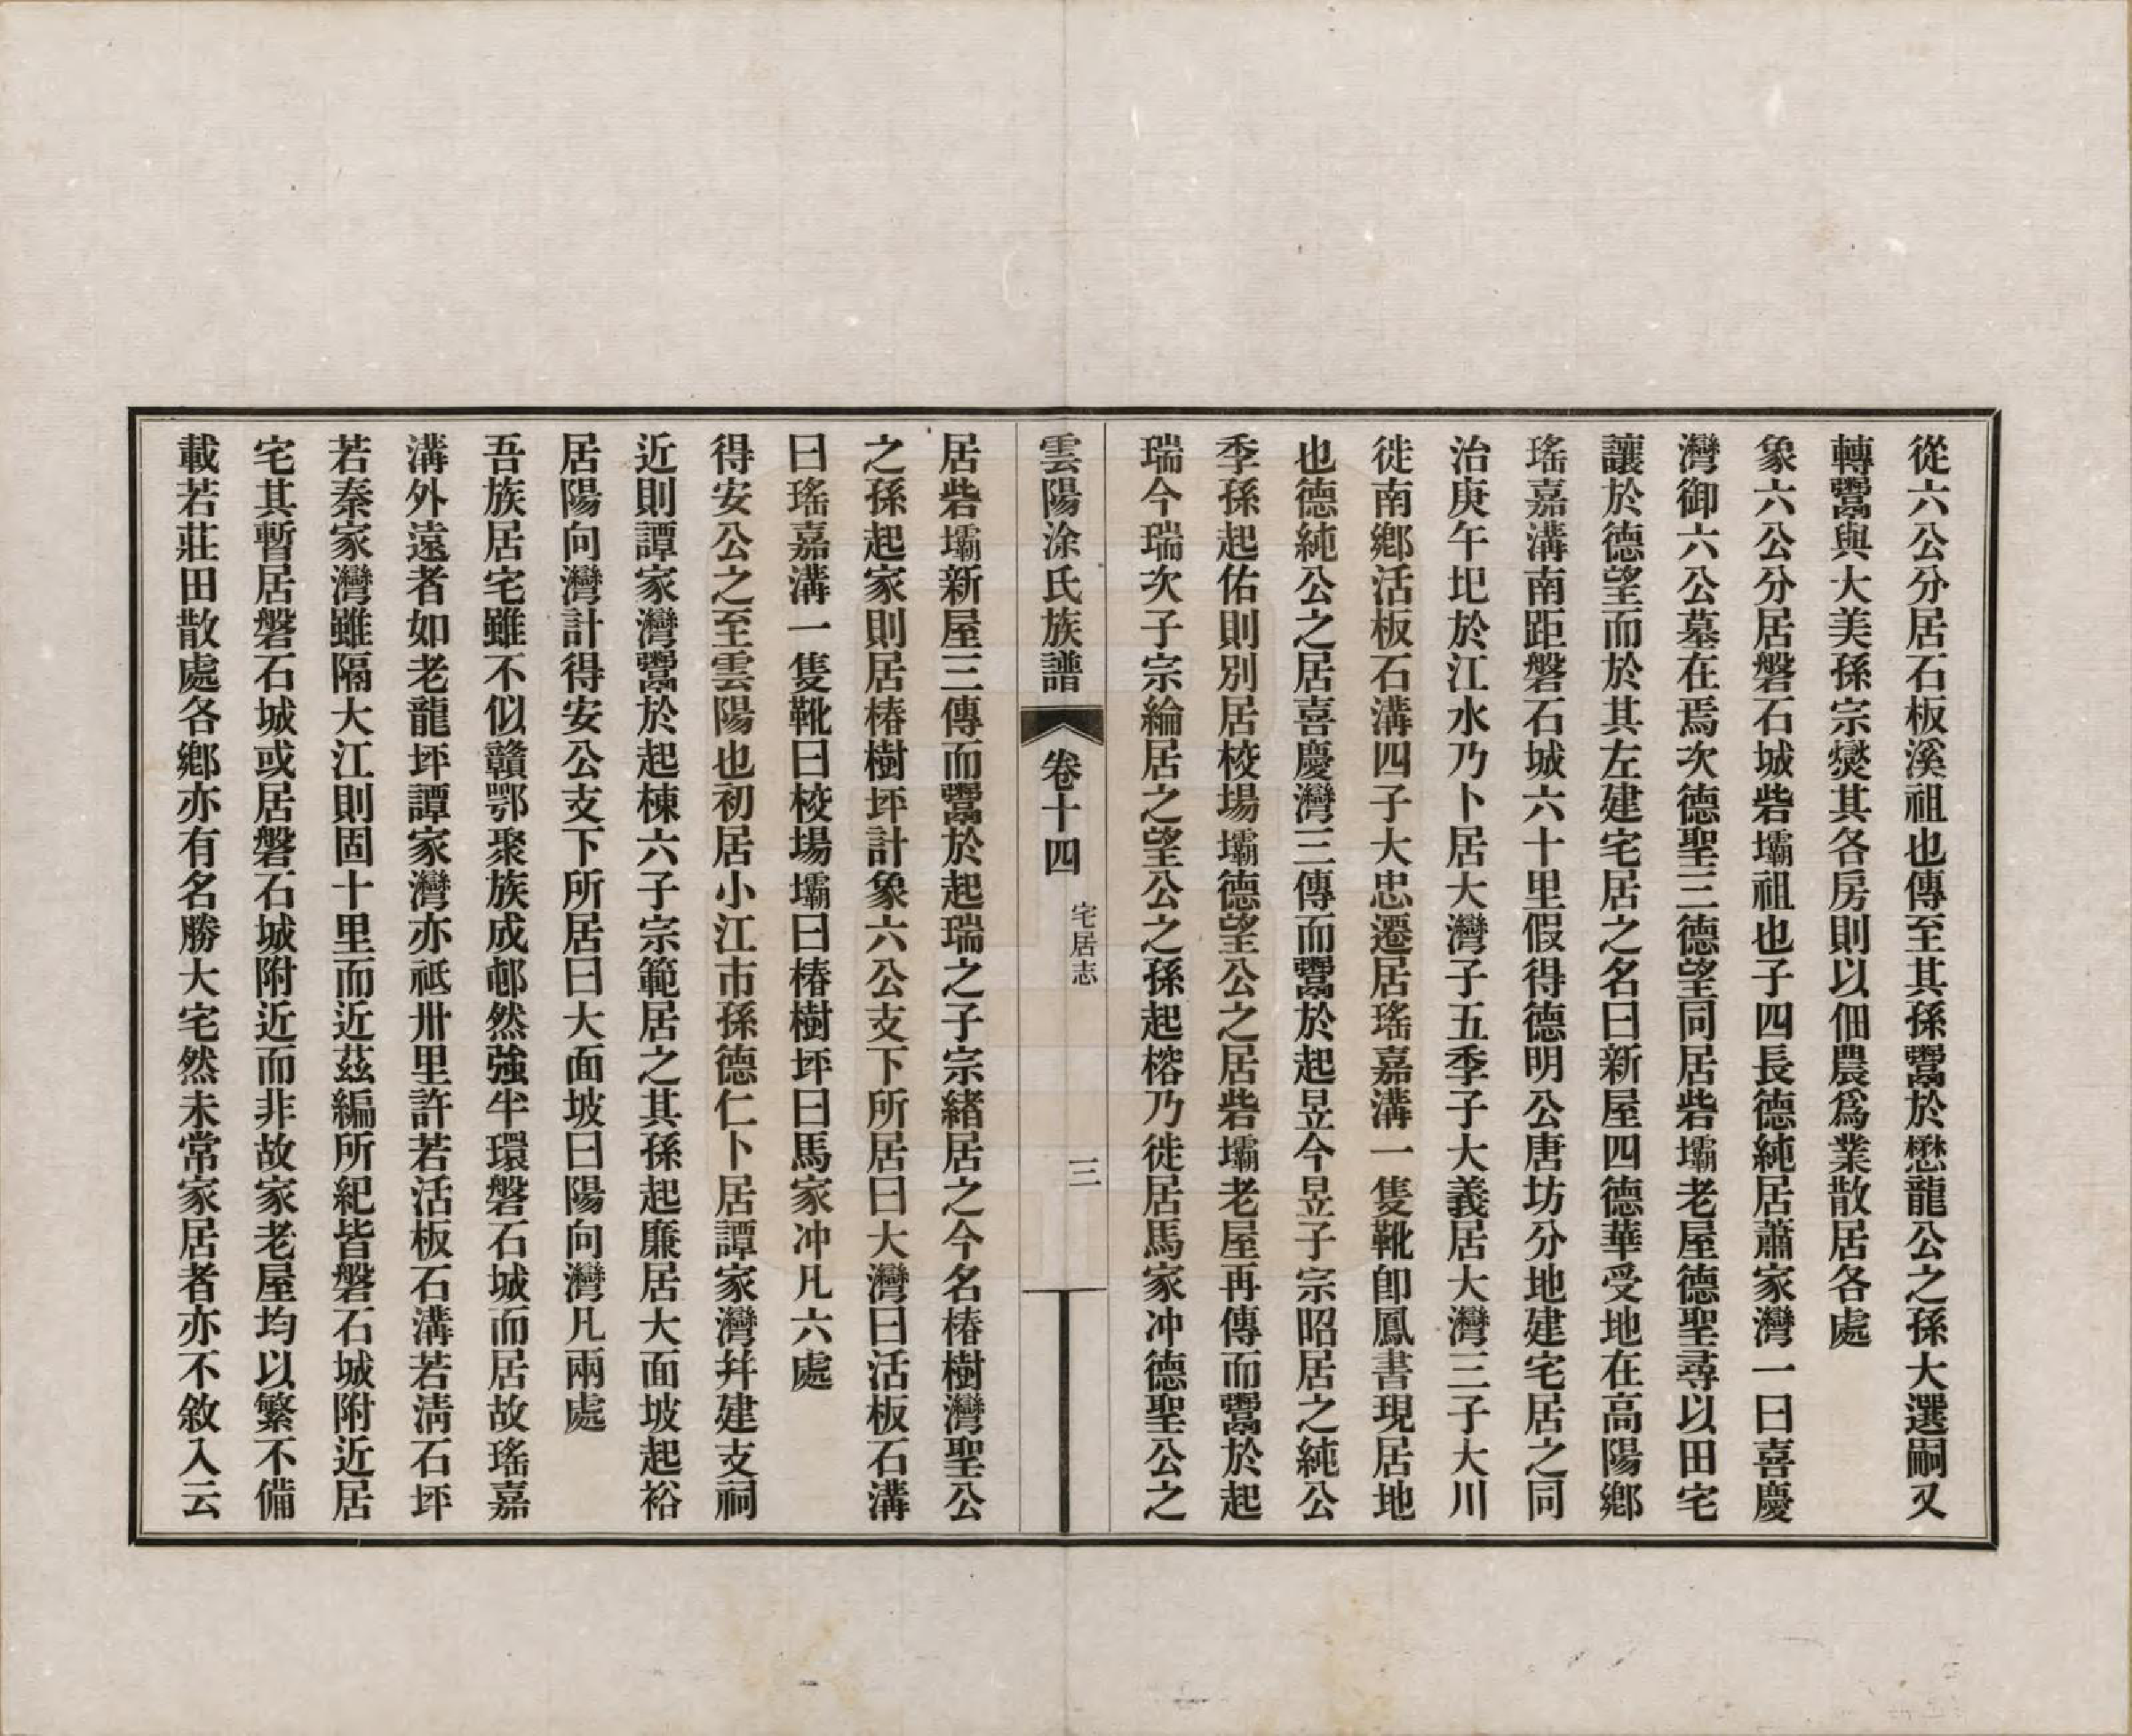 從六公分居石板溪祖也傳至其孫鬻於懋龍公之孫大選嗣又
轉鬻與大美孫宗爕其各房則以佃農爲業散居各處
象六公分居磐石城砦壩祖也子四長德純居蕭家灣一曰喜慶
灣御六公墓在焉次德聖三德望同居砦壩老屋德聖尋以田宅
讓於德望而於其左建宅居之名曰新屋四德華受地在高陽鄉
瑤嘉溝南距磐石城六十里假得德明公唐坊分地建宅居之同
治庚午圯於江水乃卜居大灣子五季子大義居大灣三子大川
徙南鄉活板石溝四子大忠遷居瑤嘉溝一隻靴卽鳳書現居地
也德純公之居喜慶灣三傳而鬻於起昱今昱子宗昭居之純公
季孫起佑則別居校場壩德望公之居砦壩老屋再傳而鬻於起
瑞今瑞次子宗綸居之望公之孫起榕乃徙居馬家冲德聖公之
雲陽涂氏族譜 卷十四 宅居志 三
居砦壩新屋三傳而鬻於起瑞之子宗緒居之今名椿樹灣聖公
之孫起家則居椿樹坪計象六公支下所居曰大灣曰活板石溝
曰瑤嘉溝一隻靴曰校場壩曰椿樹坪曰馬家冲凡六處
得安公之至雲陽也初居小江市孫德仁卜居譚家灣幷建支祠
近則譚家灣鬻於起棟六子宗範居之其孫起廉居大面坡起裕
居陽向灣計得安公支下所居曰大面坡曰陽向灣凡兩處
吾族居宅雖不似贛鄂聚族成邨然強半環磐石城而居故瑤嘉
溝外遠者如老龍坪譚家灣亦祗卅里許若活板石溝若淸石坪
若秦家灣雖隔大江則固十里而近茲編所紀皆磐石城附近居
宅其暫居磐石城或居磐石城附近而非故家老屋均以繁不備
載若莊田散處各鄉亦有名勝大宅然未常家居者亦不敘入云